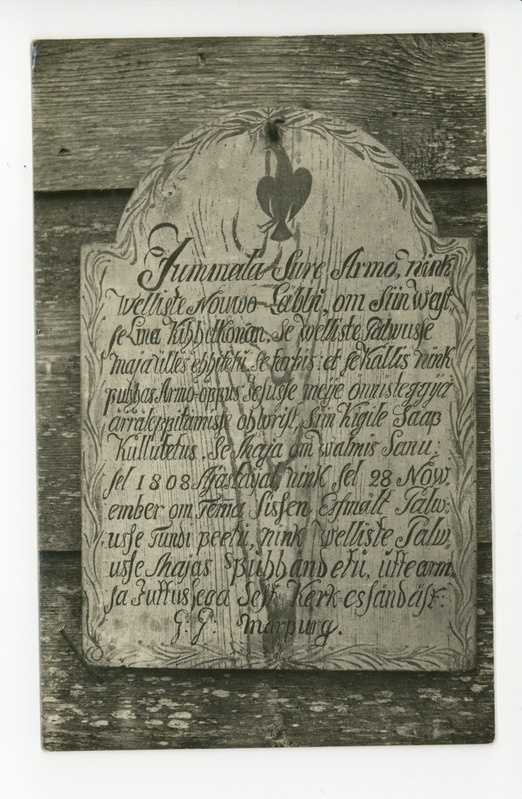 Jummala Sure Armo, nink
welliste Nouwo Läbbi, om Siin Wast,
se Lina Kihhelkonan, Se welliste Palwusse
maja ülles ehhitetü. Se tarbis: et se Kallis nink
puhhas Armo-oppus Jesusse meije önnisteggija
ärräleppitamisse ohwrist, Siin Kigile Saap
Kulutetus. Se Maja om walmis Sanu,
sel 1808 Ajastajal nink sel 28 Now,
ember om Temä Sissen Essmält Palw,
usse Tundi peetü, nink welliste Palw,
usse Majas Pühhandetü, üttearm,
sa Juttussega Sest Kerk-essändäst:
G. G. Marpurg.